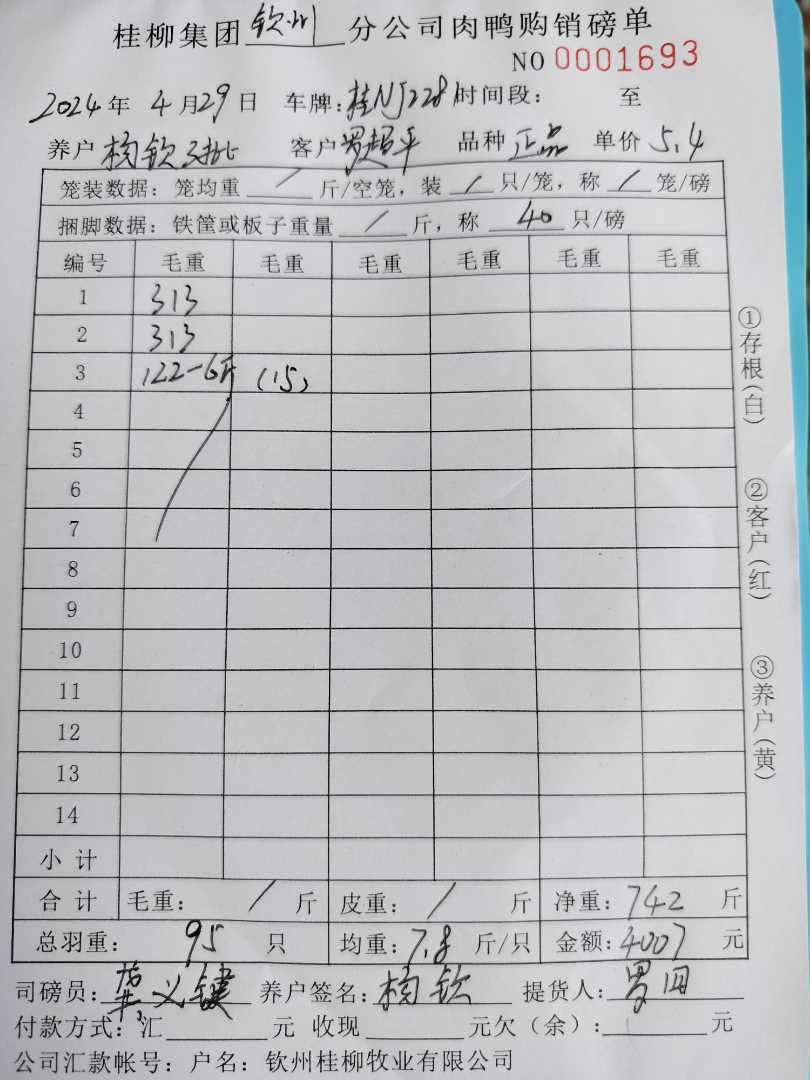 桂柳集团钦州分公司肉鸭购销磅单
NO 0001693
2024年 4月29日 车牌:桂NJ2281 时间段: 至
养户 杨钦 客户 罗超平 品种 正品 单价 5.4
笼装数据: 笼均重 / 斤/空笼, 装 / 只/笼, 称 / 笼/磅
捆脚数据: 铁筐或板子重量 / 斤, 称 40 只/磅
编号 毛重 毛重 毛重 毛重 毛重 毛重
1 313
2 313
3 122-6斤 (15)
4
5
6
7
8
9
10
11
12
13
14
小计
合计 毛重: / 斤 皮重: / 斤 净重: 742 斤
总羽重: 95 只 均重: 7.8 斤/只 金额: 4007 元
司磅员: 义键 养户签名: 杨钦 提货人: 罗
付款方式: 汇 元 收现 元欠(余): 元
公司汇款帐号: 户名: 钦州桂柳牧业有限公司
①存根(白)
②客户(红)
③养户(黄)